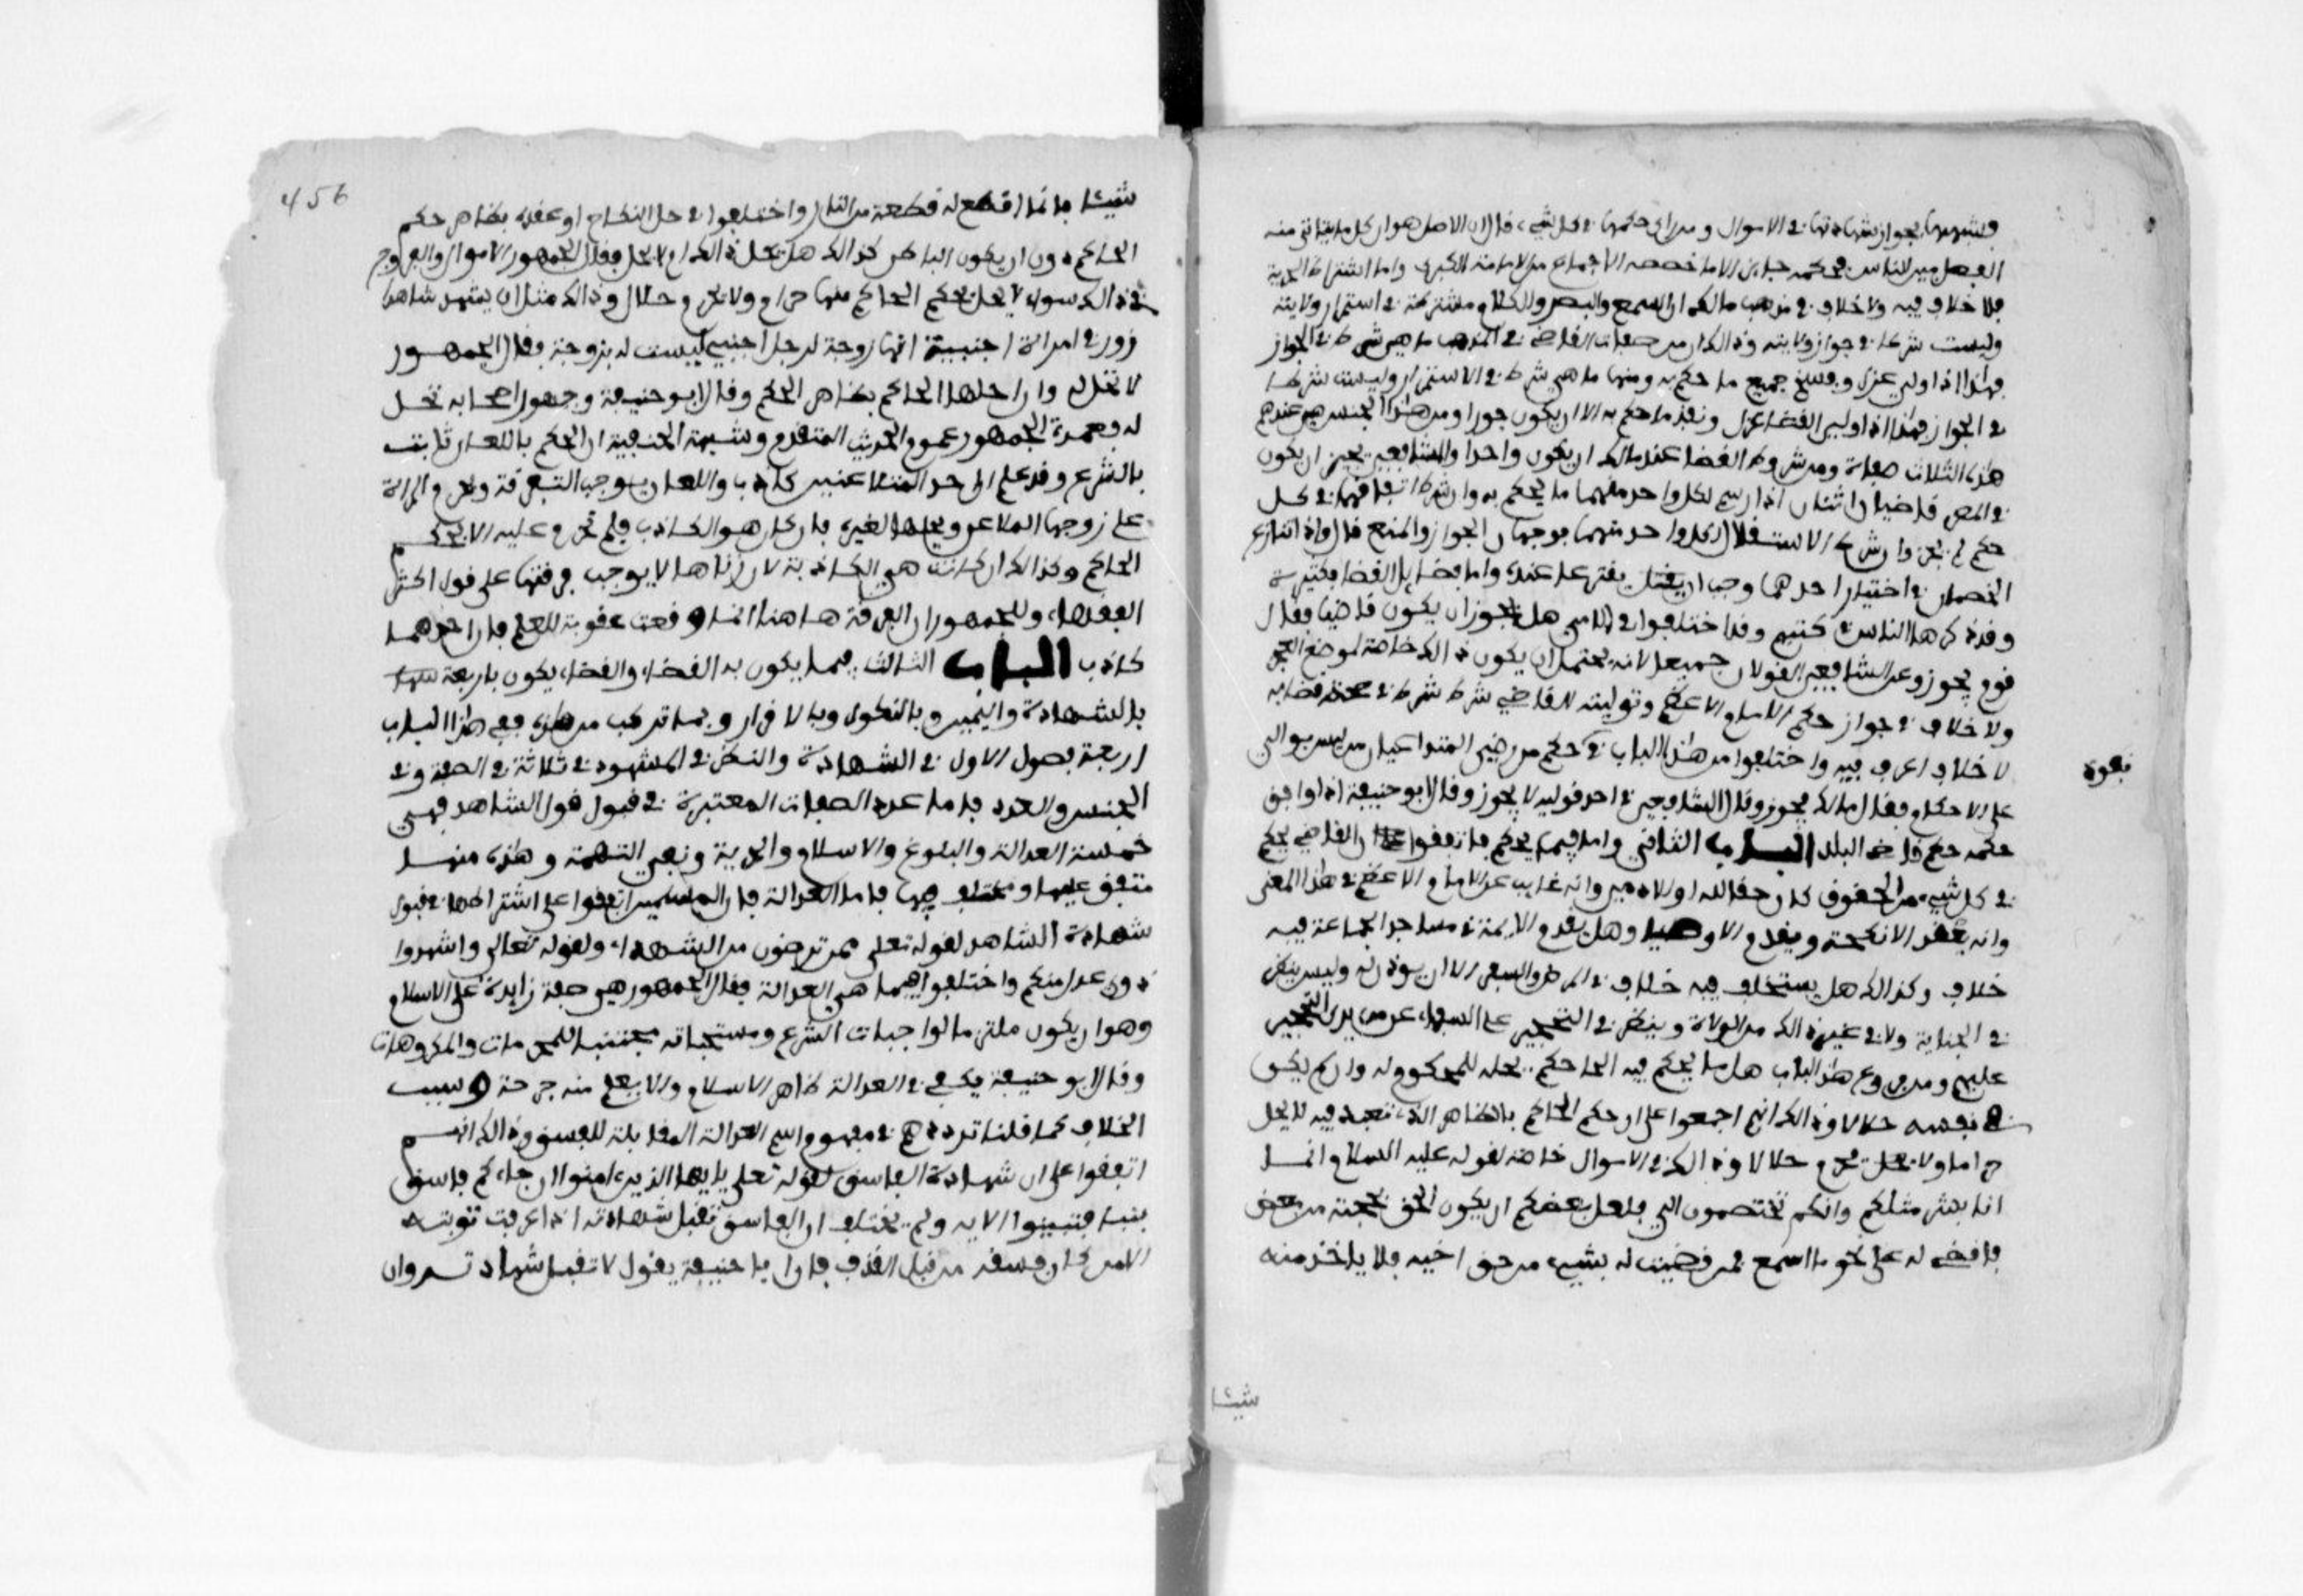 فيشبهها بجواز شهادتها في الاموال ومن راى حكمها في كل شيء قال ان الاصل هو ان كل ما يتاتى منه
الفصل بين الناس فحكمه جايز الا ما خصصه الاجماع من الامامة الكبرى واما اشتراط الحرية
فلا خلاف فيه ولا خلاف في مذهب مالك ان السمع والبصر والكلام مشترطة في استمرار ولايته
وليست شرطا في جواز ولايته وذالك ان من صفات القاضي في المذهب ما هي شرط في الجواز
فهاذا اذا ولي عزل وفسخ جميع ما حكم به ومنها ما هي شرط في الاستمرار وليست شرطا
في الجواز فهذا اذا ولي القضا عزل ونفذ ما حكم به الا ان يكون جورا ومن هذا الجنس هي عندهم
هذه الثلاث صفات ومن شروط القضا عند مالك ان يكون واحدا والشافعي يجيز ان يكون
في المصر قاضيان اثنان اذا رسم لكل واحد منهما ما يحكم به وان شرط اتفاقهما في كل
حكم لم يجز وان شرط الاستقلال لكل واحد منهما فوجهان الجواز والمنع قال واذا تنازع
الخصمان في اختيار احدهما وجب ان يقترعا عنده واما فضايل القضا فكثيرة
وقد ذكرها الناس في كتبهم وقد اختلفوا في الامي هل يجوز ان يكون قاضيا فقال
قوم يجوز وعن الشافعي القولان جميعا لانه يحتمل ان يكون ذالك خاصا لموضع العجز
ولا خلاف في جواز حكم الامام الاعظم وتوليته للقاضي شرط في صحة قضايه
لا خلاف اعرف فيه واختلفوا من هذا الباب في نفوذ حكم من رضي المتداعيان ممن ليس بوالي
على الاحكام فقال مالك يجوز وقال الشافعي في احد قوليه لا يجوز وقال ابو حنيفة اذا وافق
حكمه حكم قاضي البلد الباب الثاني واما فيما يحكم فاتفقوا ان القاضي يحكم
في كل شيء من الحقوق كان حقا لله او للادميين وانه نايب عن الامام الاعظم في هذا المعنى
وانه يعقد الانكحة ويقدم الاوصيا وهل يقدم الايمة في مساجد الجماعة فيه
خلاف وكذالك هل يستخلف فيه خلاف في المرض والسفر الا ان يوذن له وليس ينظر
في الجباية ولا في غير ذالك من الولاة وينظر في التحجير على السفهاء عند من يرى التحجير
عليهم ومن فروع هذا الباب هل ما يحكم فيه الحاكم يحله للمحكوم له وان لم يكن
في نفسه حلالا وذالك انهم اجمعوا على ان حكم الحاكم بالظاهر الذي تعبد فيه لا يحل
حراما ولا يحرم حلالا وذالك في الاموال خاصة لقوله عليه السلام انما
انا بشر مثلكم وانكم تختصمون الي فلعل بعضكم ان يكون الحن بحجته من بعض
فاقضي له على نحو ما اسمع فمن قضيت له بشيء من حق اخيه فلا ياخذ منه
نفوذ
شيئا
456
شيئا فانما اقطع له قطعة من النار واختلفوا في حل النكاح او عقده بظاهر حكم
الحاكم دون ان يكون الباطن كذالك هل يحل ذالك ام لا يحل فقال الجمهور الاموال والفروج
في ذالك سواء لا يحل حكم الحاكم منها حرام ولا يحرم حلال وذالك مثل ان يشهد شاهدا
زور في امراة اجنبية انها زوجة لرجل اجنبي ليست له بزوجة فقال الجمهور
لا تحل له وان احلها الحاكم بظاهر الحكم وقال ابو حنيفة وجمهور اصحابه تحل
له فعمدة الجمهور عموم الحديث المتقدم وشبهة الحنفية ان الحكم باللعان ثابت
بالشرع وقد علم ان احد المتلاعنين كاذب واللعان يوجب التفرقة ويحرم المراة
على زوجها الملاعن ويحلها لغيره فان كان هو الكاذب فلم تحرم عليه الا بحكم
الحاكم وكذالك ان كانت هي الكاذبة لان زناها لا يوجب فرقتها على قول اكثر
الفقهاء وللجمهور ان الفرقة هاهنا انما وقعت عقوبة للعلم بان احدهما
كاذب الباب الثالث فيما يكون به القضاء والقضاء يكون باربعة
بالشهادة واليمين وبالنكول وبالاقرار وبما تركب من هذه ففي هذا الباب
اربعة فصول الاول في الشهادة والنظر في الشهود في ثلاثة في الصفة وفي
الجنس والعدد فاما عدد الصفات المعتبرة في قبول قول الشاهد فهي
خمسة العدالة والبلوغ والاسلام والحرية ونفي التهمة وهذه منها
متفق عليها ومختلف فيها فاما العدالة فان المسلمين اتفقوا على اشتراطها في قبول
شهادة الشاهد لقوله تعلى ممن ترضون من الشهداء ولقوله تعالى واشهدوا
ذوي عدل منكم واختلفوا فيما هي العدالة فقال الجمهور هي صفة زايدة على الاسلام
وهو ان يكون ملتزما لواجبات الشرع ومستحباته مجتنبا للمحرمات والمكروهات
وقال ابو حنيفة يكفي في العدالة ظاهر الاسلام والا يعلم منه جرحة وسبب
الخلاف كما قلنا ترددهم في مفهوم اسم العدالة المقابلة للفسق وذالك انهم
اتفقوا على ان شهادة الفاسق لقوله تعلى يايها الذين امنوا ان جاءكم فاسق
بنبا فتبينوا الاية ولم يختلف ان الفاسق تقبل شهادته اذا عرفت توبته
الا من كان فسقه من قبل القذف فان ابا حنيفة يقول لا تقبل شهادته وان